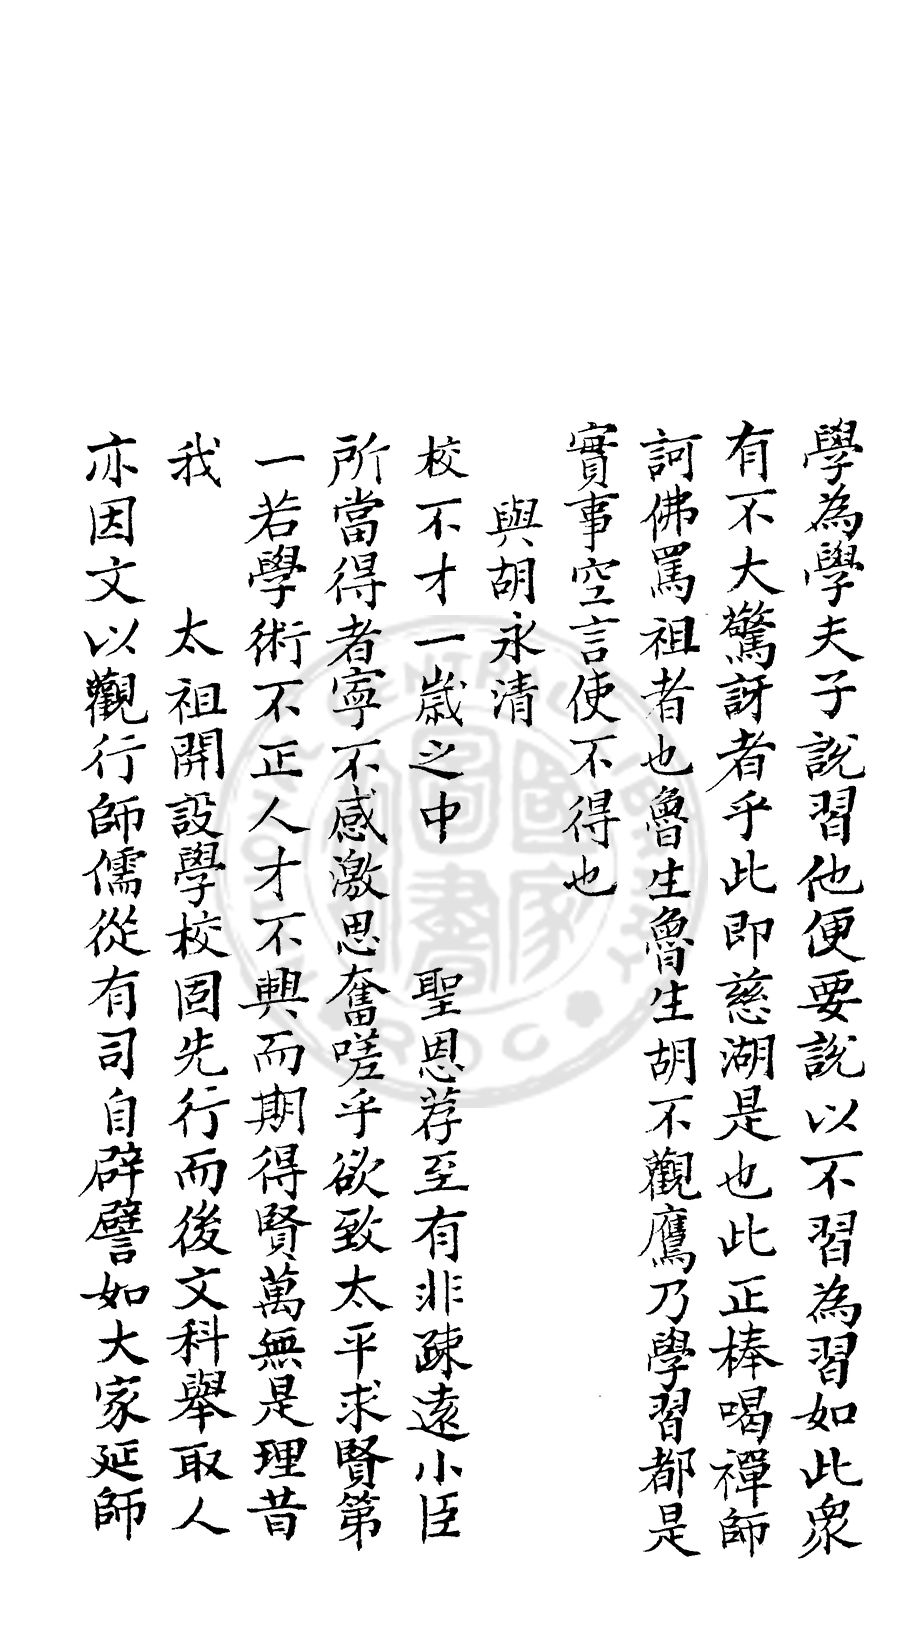 學為學夫子說習他便要說以不習為習如此眾
有不大驚訝者乎此即慈湖是也此正棒喝禪師
訶佛罵祖者也魯生魯生胡不觀鷹乃學習都是
實事空言使不得也
與胡永清
校不才一歲之中　聖恩荐至有非疎遠小臣
所當得者寧不感激思奮嗟乎欲致太平求賢第
一若學術不正人才不興而期得賢萬無是理昔
我　太祖開設學校固先行而後文科舉取人
亦因文以觀行師儒從有司自辟譬如大家延師